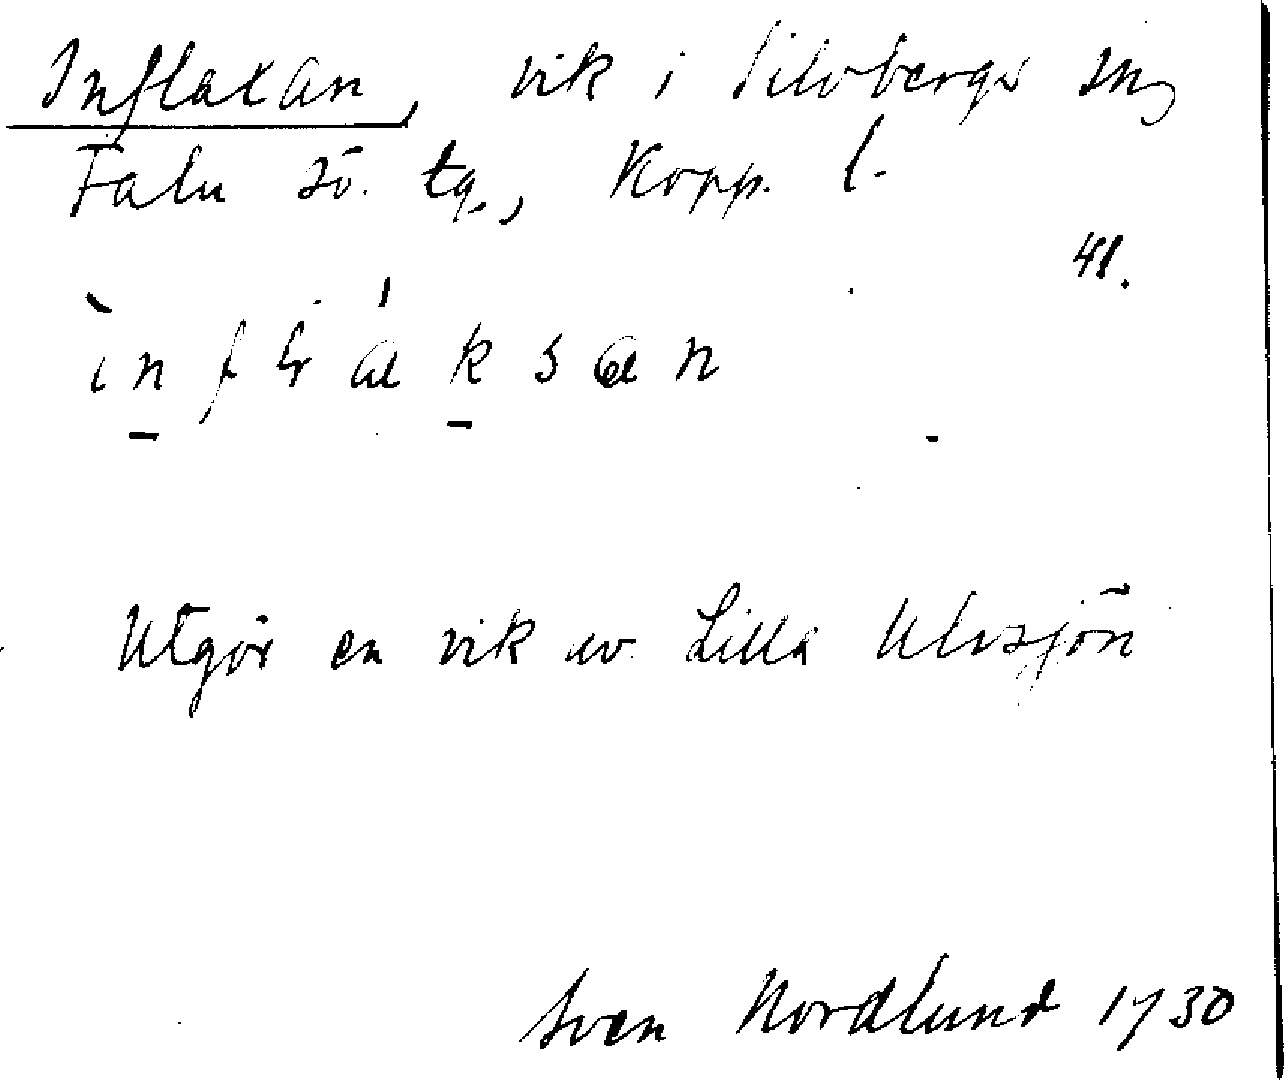 Inflaxan, vik i Silvbergs sn,
Falu sö. tg., Kopp. l.
41.
ìnflák san
Utgör en vik av Lilla Ulvsjön
Sven Nordlund 1930